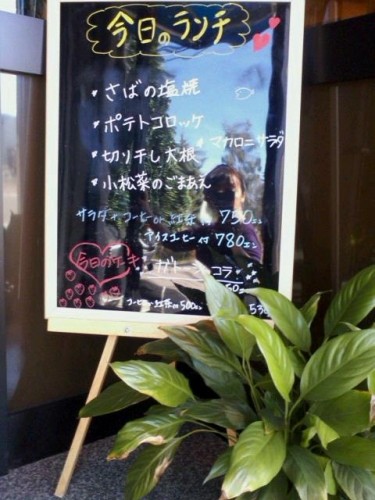 今日のランチ
さばの塩焼
ポテトコロッケ
マカロニサラダ
切り干し大根
小松菜のごまあえ
サラダ+コーヒーor紅茶付 750エン
アイスコーヒー付 780エン
今日のケーキ
ガトーショコラ
コーヒーor紅茶付 500エン